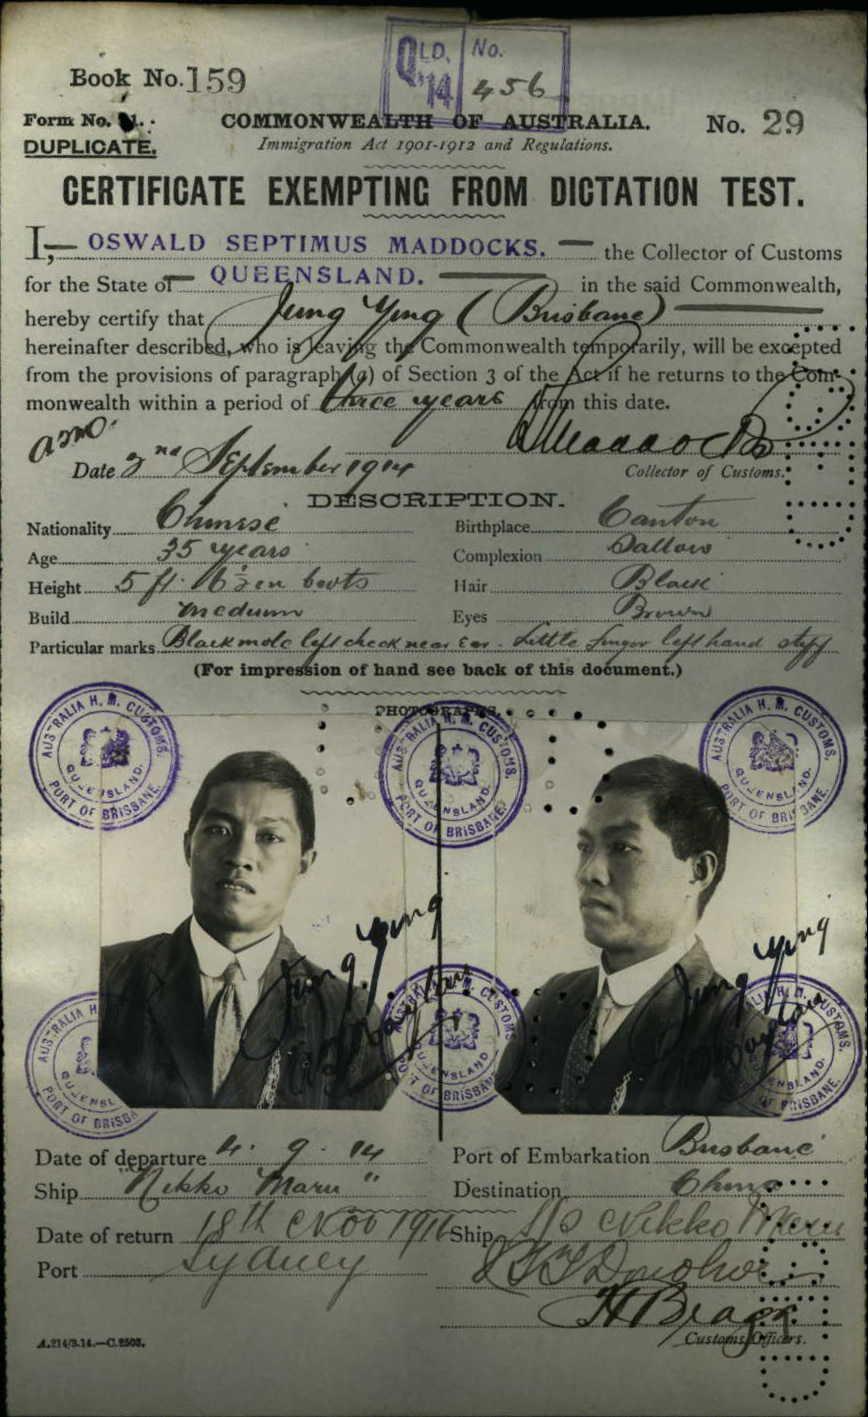 QLD. No.
'14 456
Book No. 159
Form No. 21.
COMMONWEALTH OF AUSTRALIA.
No. 29
DUPLICATE.
Immigration Act 1901-1912 and Regulations.
CERTIFICATE EXEMPTING FROM DICTATION TEST.
I, OSWALD SEPTIMUS MADDOCKS. the Collector of Customs
for the State of QUEENSLAND. in the said Commonwealth,
hereby certify that Jung Ying (Brisbane)
hereinafter described, who is leaving the Commonwealth temporarily, will be excepted
from the provisions of paragraph (a) of Section 3 of the Act if he returns to the Com-
monwealth within a period of three years from this date.
Date 2nd September 1914
Collector of Customs.
DESCRIPTION.
Nationality Chinese Birthplace Canton
Age 35 years Complexion Sallow
Height 5 ft. 6½ in boots Hair Black
Build Medium Eyes Brown
Particular marks Black mole left cheek near Ear. Little finger left hand stiff
(For impression of hand see back of this document.)
PHOTOGRAPHS.
AUSTRALIA H. M. CUSTOMS. QUEENSLAND. PORT OF BRISBANE.
AUSTRALIA H. M. CUSTOMS. QUEENSLAND. PORT OF BRISBANE.
AUSTRALIA H. M. CUSTOMS. QUEENSLAND. PORT OF BRISBANE.
Jung Ying
Jung Ying
AUSTRALIA H QUEENSL PORT OF BRISBA
AUSTRALIA H. M. CUSTOMS. QUEENSLAND PORT OF BRISBAN
H. M. CUSTOMS. QUEENSLAND. OF BRISBANE.
Date of departure 4. 9. 14 Port of Embarkation Brisbane
Ship "Nikko Maru" Destination China
Date of return 18th Nov 1916 Ship S/S Nikko Maru
Port Sydney
Customs Officers.
A.214/3.14.—C.2503.